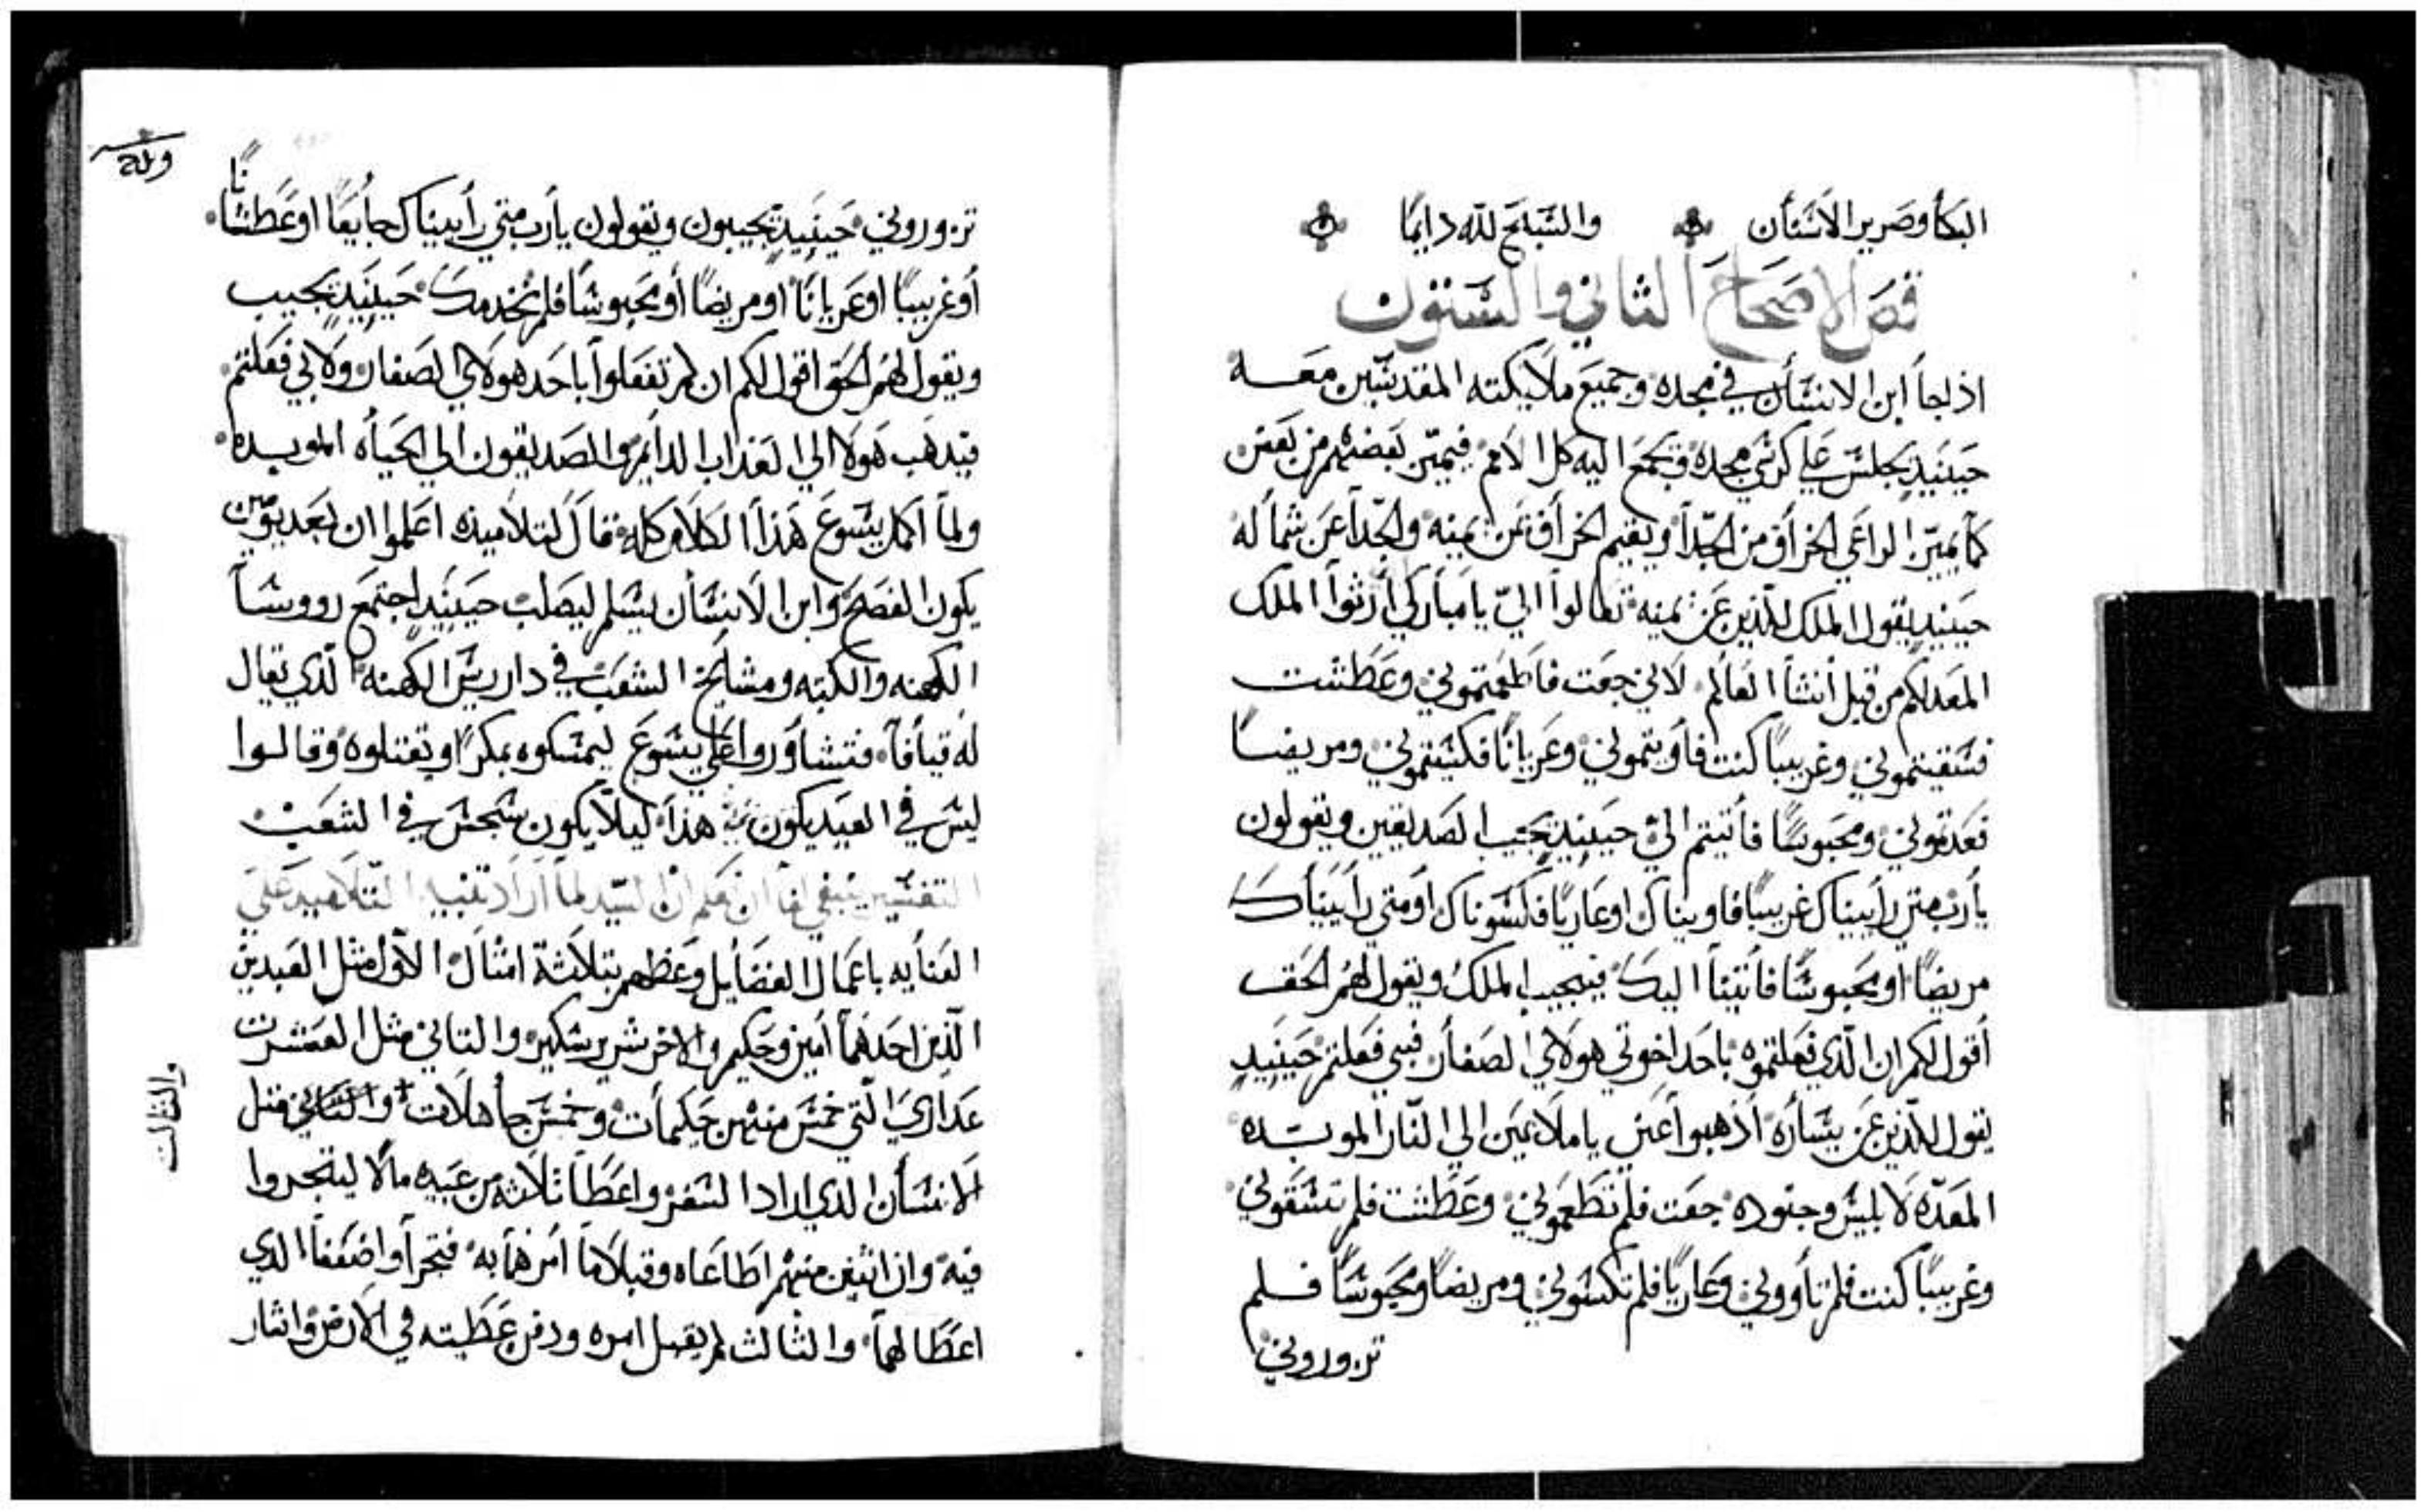 البكا وصرير الاسنان والتسبح لله دايما
فصر الاصحاح الثاني والستون
اذا جا ابن الانسان في مجده وجميع ملايكته المقدسين معه
حينيد يجلس علي كرسي مجده ويجمع اليه كل الامم فيميز بعضهم من بعض
كما يميز الراعي الخراف من الجدا ويقيم الخراف عن يمينه والجدا عن شماله
حينيد يقول الملك للذين عن يمينه تعالوا الي يا مباركي ارثوا الملك
المعد لكم من قبل انشا العالم لاني جعت فاطعمتموني وعطشت
فسقيتموني وغريبا كنت فاويتموني وعريانا فكسيتموني ومريضا
فعدتموني ومحبوسا فاتيتم الي حينيد يجيب الصديقين ويقولون
يارب متي رأيناك غريبا فاويناك او عاريا فكسوناك او متي رأيناك
مريضا او محبوسا فاتينا اليك فيجيب الملك ويقول لهم الحق
أقول لكم ان الذي فعلتموه باحد اخوتي هولاي الصغار فبي فعلتم حينيد
يقول للذين عن يساره اذهبوا عني يا ملاعين الي النار الموبده
المعده لابليس وجنوده جعت فلم تطعموني وعطشت فلم تسقوني
وغريبا كنت فلم تأووني وعاريا فلم تكسوني ومريضا ومحبوسا فلم
تزوروني
تزوروني حينيد يجيبون ويقولون يارب متي رأيناك جايعا او عطشانا
أو غريبا او عريانا او مريضا أو محبوسا فلم نخدمك حينيد يجيب
ويقول لهم الحق اقول لكم ان لم تفعلوا باحد هولاي الصغار ولا بي فعلتم
فيدهب هولا الي العذاب الدايم والصديقون الي الحياه الموبده
ولما اكمل يسوع هذا الكلام كله قال لتلاميذه اعلموا ان بعد يومين
يكون الفصح وابن الانسان يسلم ليصلب حينيد اجتمع رووسا
الكهنه والكتبه ومشايخ الشعب في دار ريس الكهنه الذي يقال
له قيافا فتشاوروا علي يسوع ليمسكوه بمكر ويقتلوه وقالوا
ليس في العيد يكون هذا ليلا يكون سجس في الشعب
التفسير ينبغي لنا ان نعلم ان السيد لما اراد تنبيه التلاميد علي
العنايه باعمال الفضايل وعظهم بثلاثة امثال الاول مثل العبدين
الذين احدهما امين وحكيم والاخر شرير سكير والتاني مثل العشرت
عداري التي خمس منهن حكيمات وخمس جاهلات والتاني مثل
والثالت
الانسان الذي اراد السفر واعطا ثلاثه من عبيده مالا ليتجروا
فيه وان اثنين منهم اطاعاه وقبلا ما امرهما به فتجرا واضعفا الذي
اعطا لهما والثالث لم يقبل امره ودفن عطيته في الارض واثار